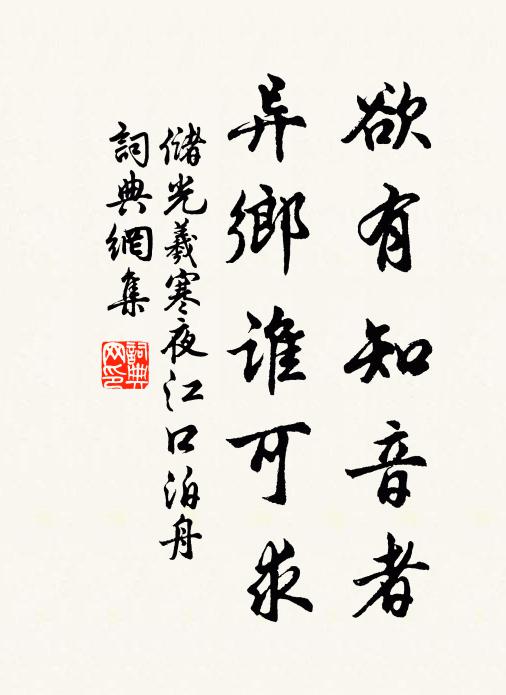 欲有知音者
异鄉谁可求
储光羲寒夜江口泊舟
詞典網集
詞典
网印